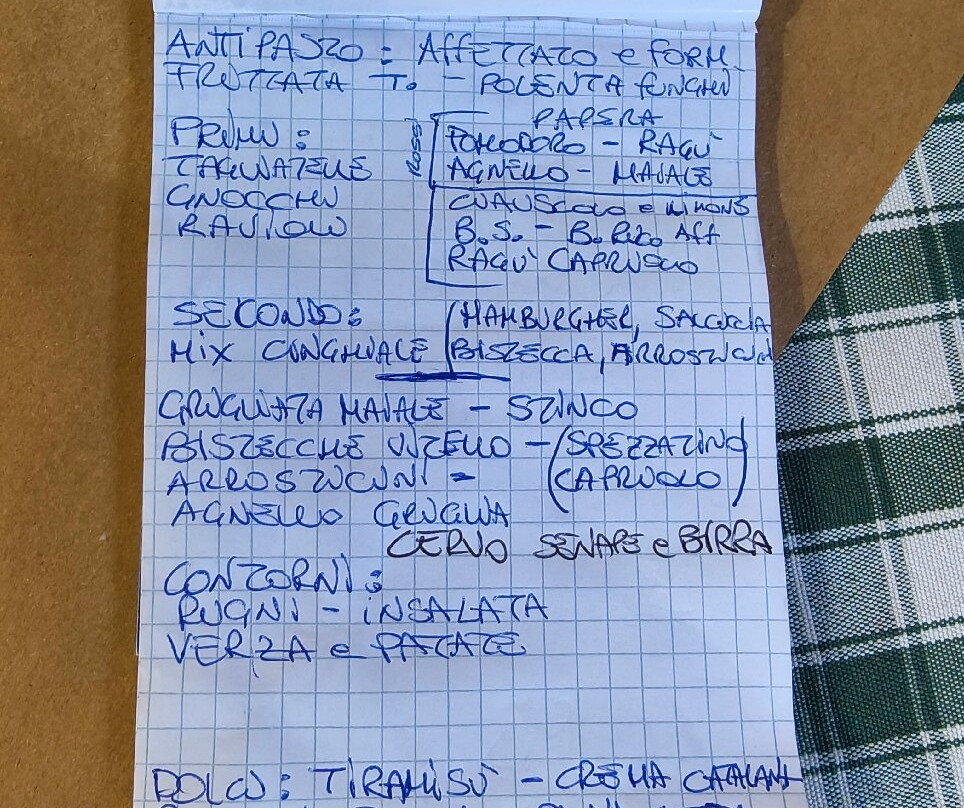 ANTIPASTO: AFFETTATO e FORM.
FRITTATA T. - POLENTA FUNGHI
PRIMI:
TAGLIATELLE
GNOCCHI
RAVIOLI
ROSSI
PAPERA
POMODORO - RAGU'
AGNELLO - MAIALE
CIAUSCOLO e LIMONE
B.S. - B. Ric. Aff
RAGU' CAPRIOLO
SECONDO:
MIX CINGHIALE
(HAMBURGHER, SALCICCIA
BISTECCA, ARROSTICINI
GRIGLIATA MAIALE - STINCO
BISTECCHE VITELLO - (SPEZZATINO
ARROSTICINI - CAPRIOLO)
AGNELLO GRIGLIA
CERVO SENAPE e BIRRA
CONTORNI:
RUGNI - INSALATA
VERZA e PATATE
DOLCI: TIRAMISÙ - CREMA CATALANA